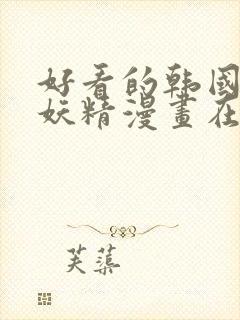 好看的韩国
妖精漫畫在
芙蕖